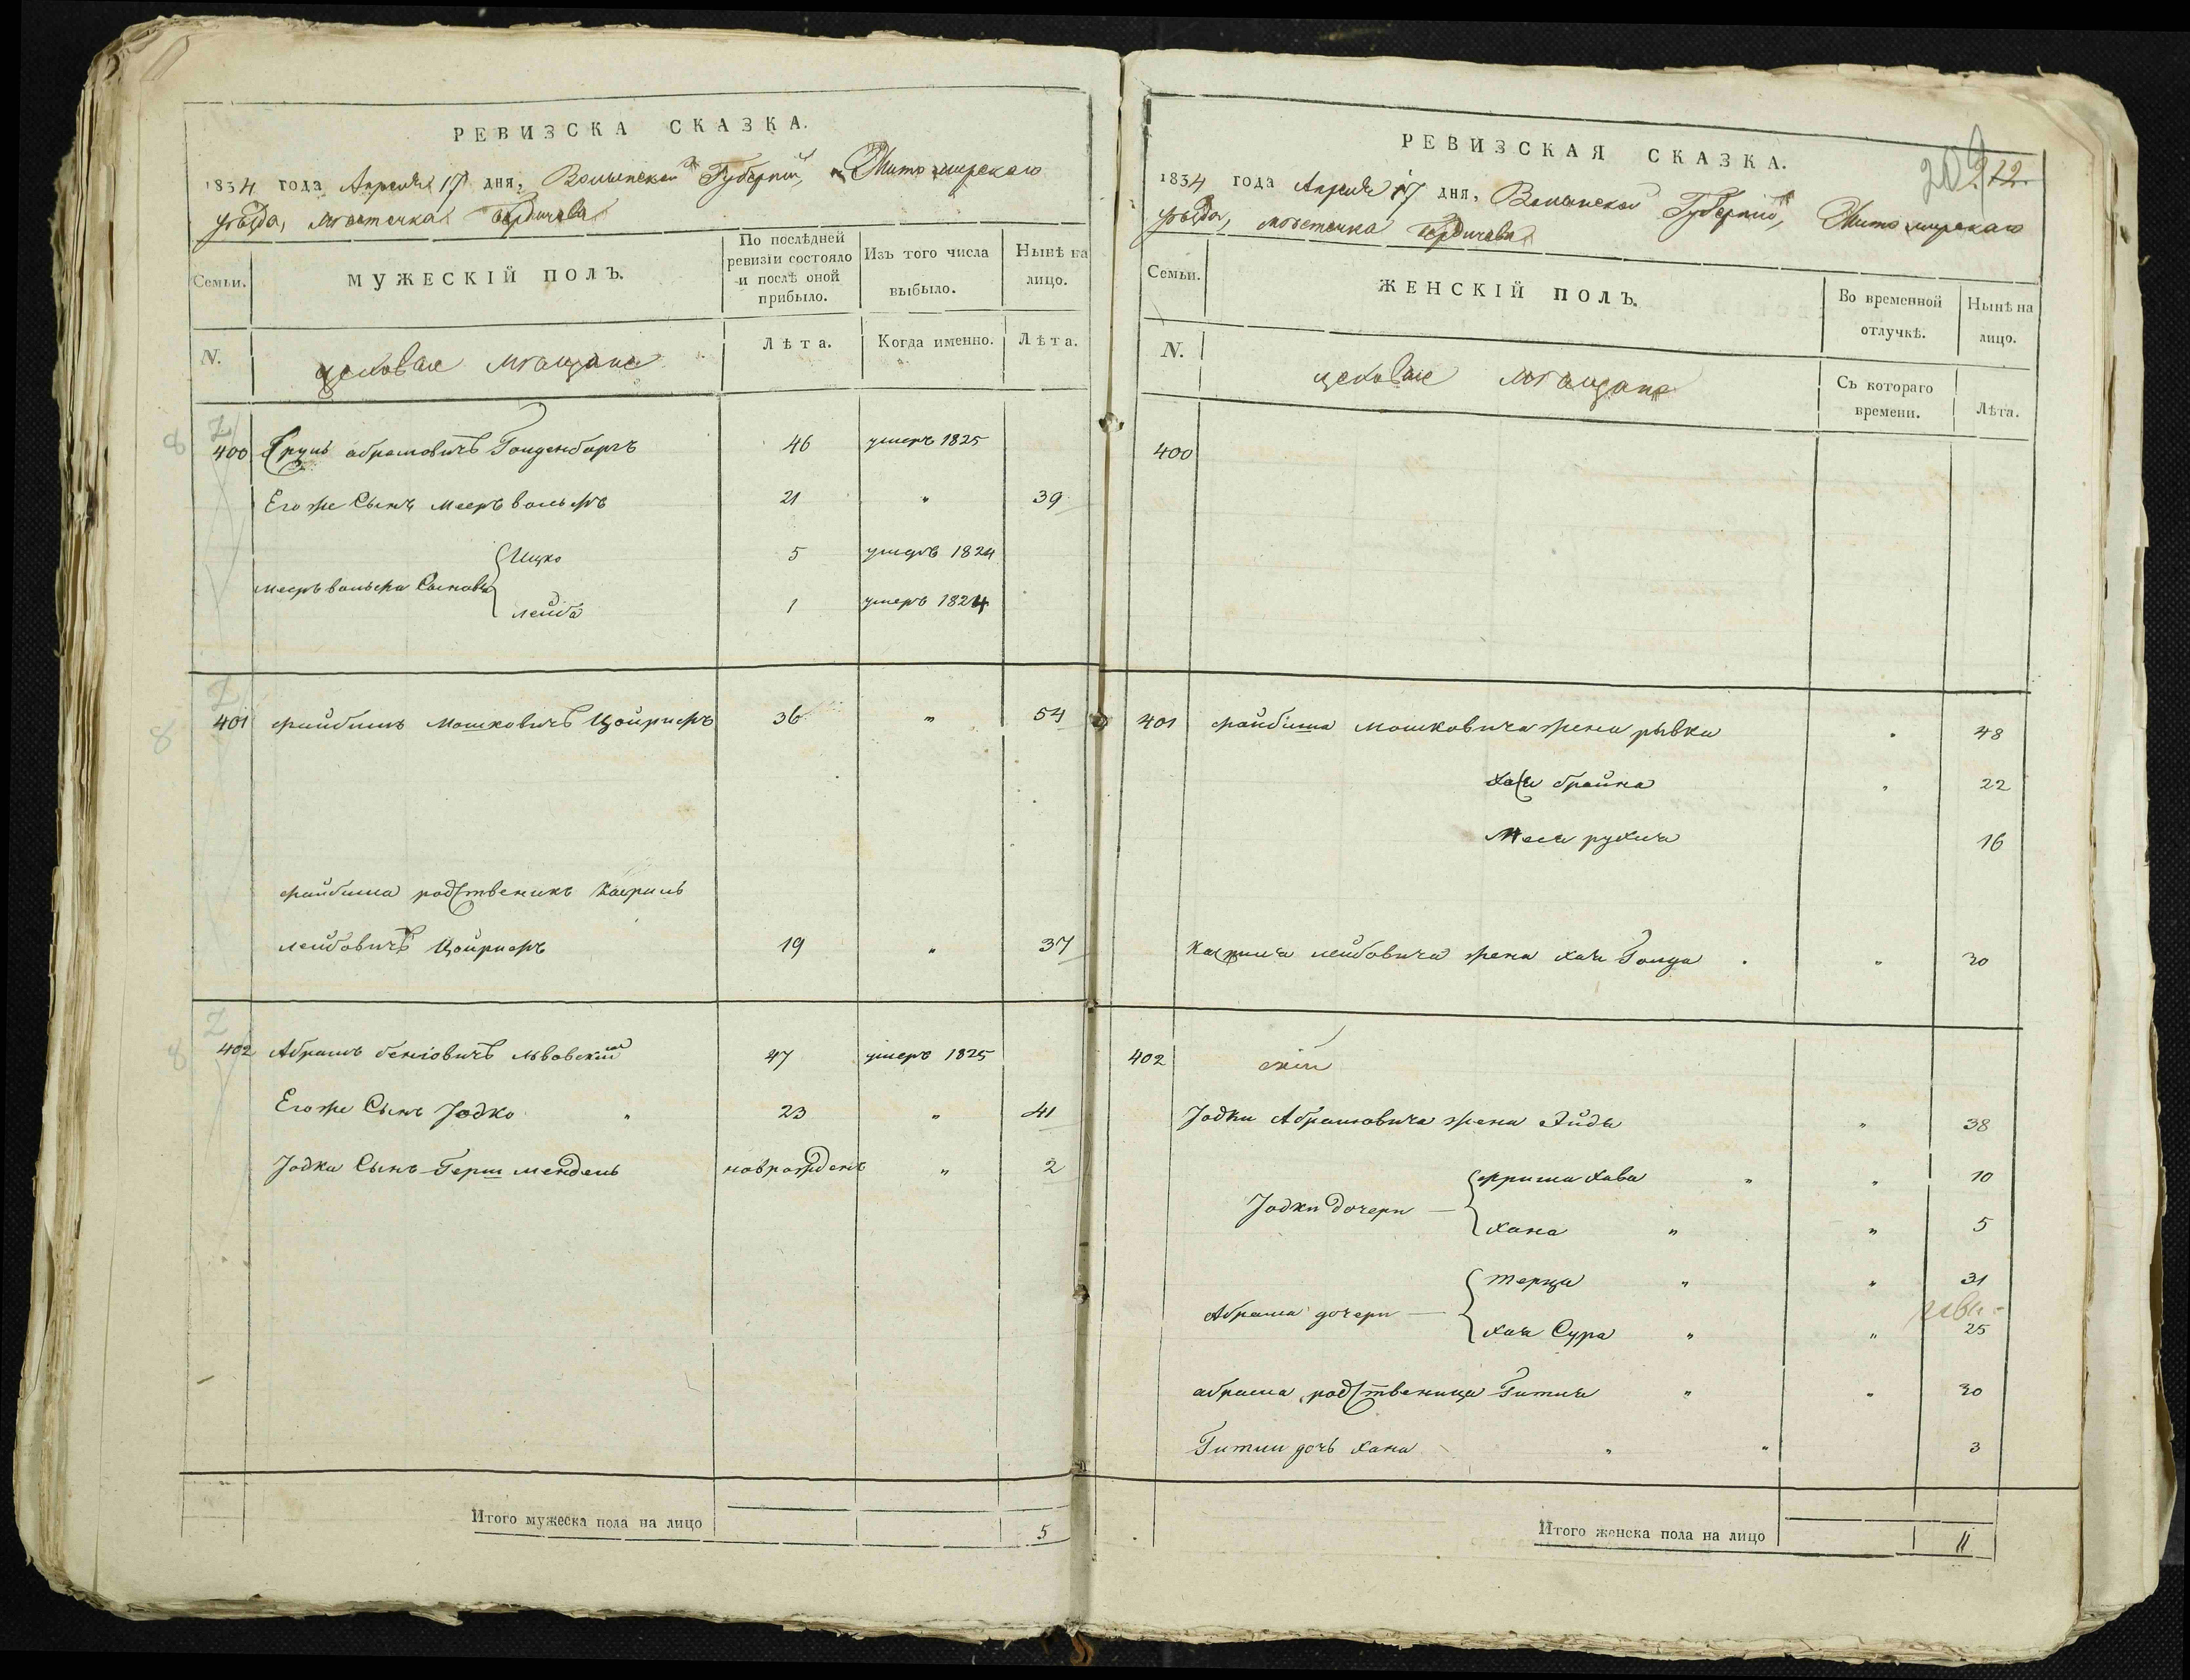 РЕВИЗСКА СКАЗКА.
1834 года Апреля 17 дня, Волынской Губернии, Житомирскаго
уѣзда, местечка Бердичева
Семьи.
МУЖЕСКІЙ ПОЛЪ.
По послѣдней ревизіи состояло и послѣ оной прибыло.
Изъ того числа выбыло.
Нынѣ на лицо.
N.
цеховые мѣщане
Лѣта.
Когда именно.
Лѣта.
400 абрамовичъ Голденбаргъ 46 умеръ 1825
Егоже Сынъ Мееръ вольфъ 21 " 39
Мееръ вольфа Сыновья
Ицко 5 умеръ 1824
лейба 1 умеръ 1824
401 файбишъ Мошковичъ Цойрифъ 36 " 54
файбиша родственикъ Каприль
лейбовичъ Цойрифъ 19 " 37
402 Абрамъ беніовичъ львовскій 47 умеръ 1825
Егоже Сынъ Іодко " 23 " 41
Іодки Сынъ Герш мендель новрожденъ " 2
Итого мужеска пола на лицо 5
РЕВИЗСКАЯ СКАЗКА.
209 212.
1834 года Апреля 17 дня, Волынской Губерніи, Житомирскаго
уѣзда, местечка Бердичева
Семьи.
ЖЕНСКІЙ ПОЛЪ.
Во временной отлучкѣ.
Нынѣ на лицо.
N.
цеховые мѣщане
Съ котораго времени.
Лѣта.
400
401 файбиша мошковича жена рывка " 48
хася брайна " 22
Меся рухля 16
Каприля лейбовича жена хая Голда " 30
402
Іодки Абрамовича жена Эйдя " 38
Іодки дочери —
фрима хава " " 10
хана " " 5
Абрама дочери —
терца " " 31
хая Сура " " 25
абрама родственица Гитля " " 30
Гитли дочь хана " " 3
Итого женска пола на лицо 11